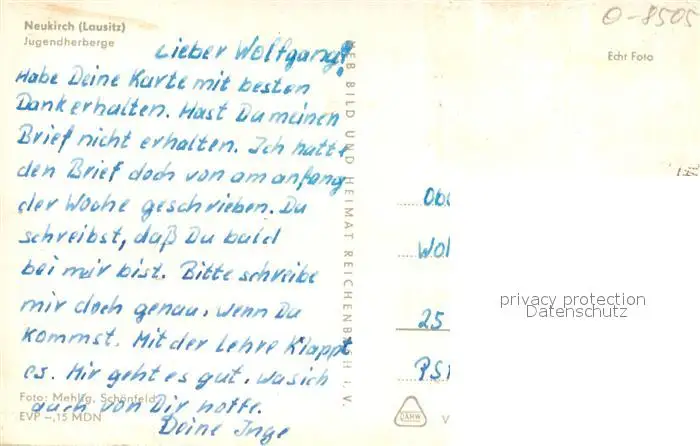 Neukirch (Lausitz)
Jugendherberge
O-8505
Echt Foto
Lieber Wolfgang!
Habe Deine Karte mit besten
Dank erhalten. Hast Du meinen
Brief nicht erhalten. Ich hatte
den Brief doch von am anfang
der Woche geschrieben. Du
schreibst, daß Du bald
bei mir bist. Bitte schreibe
mir doch genau, wenn Du
kommst. Mit der Lehre klappt
es. Mir geht es gut, was ich
auch von Dir hoffe.
Deine Inge
Foto: Mehlig, Schönfeld
EVP -,15 MDN
VEB BILD UND HEIMAT REICHENBACH i. V.
Obe
Wol
25
PSF
privacy protection
Datenschutz
DAHW
V